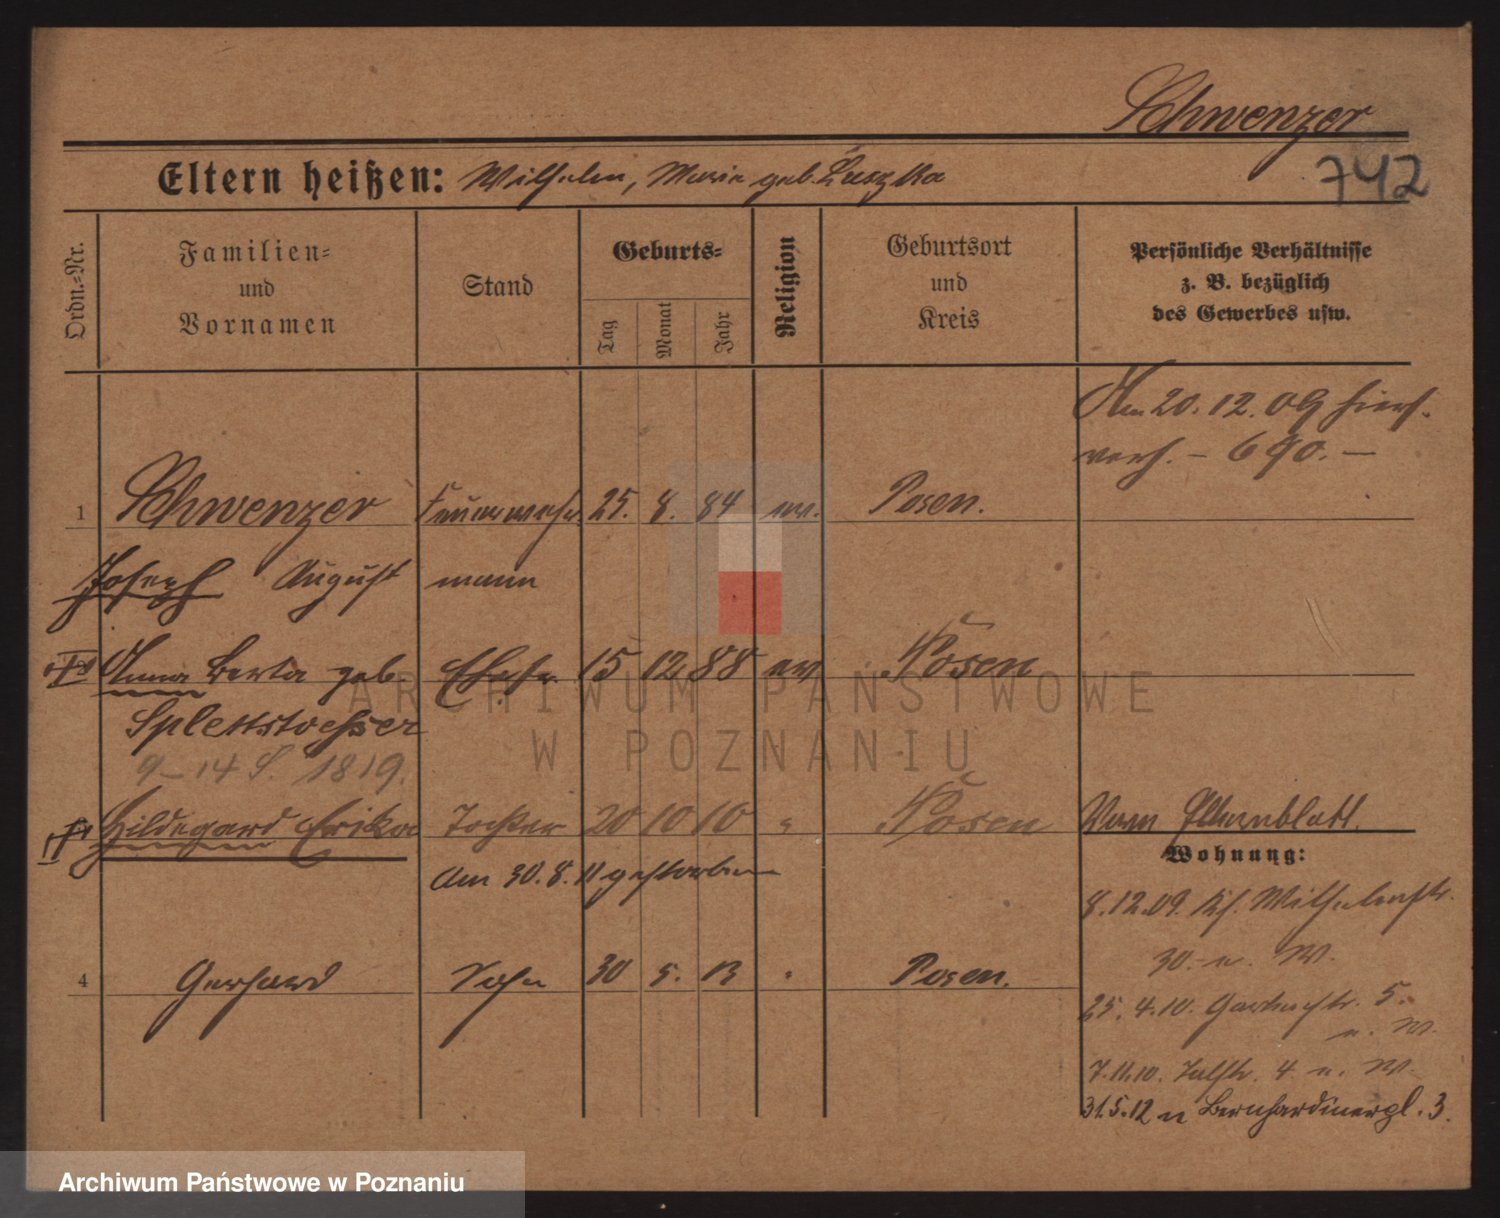 Schwenzer
742
Eltern heißen: Wilhelm, Marie geb. Luszka
Ordn.-Nr.
Familien- und Vornamen
Stand
Geburts-
Tag
Monat
Jahr
Religion
Geburtsort und Kreis
Persönliche Verhältnisse z. B. bezüglich des Gewerbes usw.
Am 20. 12. 09 hier
verh. – 690. –
1 Schwenzer Feuerwehr 25. 8. 84 ev. Posen.
Joseph August mann
Anna Berta geb. Ehefr. 15 12 88 ev Posen
Splettstoehsser
9–14 S. 1819.
Hildegard Erika Tochter 20 10 10 " Posen
Vom Elternblatt.
Am 30. 8. 11 gestorben
Wohnung:
8. 12. 09. Wilhelmstr.
30. – n. W.
4 Gerhard Sohn 30 5. 13 " Posen.
25. 4. 10. Gartenstr. 5.
n. W.
7. 11. 10. Talstr. 4 n. W.
31. 5. 12 n Bernhardinerpl. 3.
ARCHIWUM PAŃSTWOWE
W POZNANIU
Archiwum Państwowe w Poznaniu